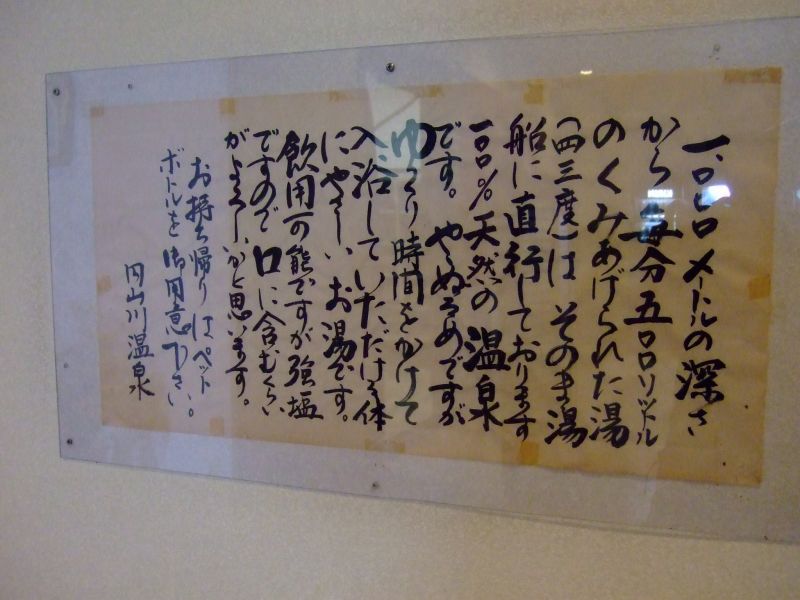 一〇〇〇メートルの深さ
から毎分五〇〇リットル
のくみあげられた湯
(四三度)は そのまゝ湯
船に直行しております
一〇〇%天然の温泉
です。 やゝぬるめですが
ゆっくり時間をかけて
入浴していただける体
にやさしいお湯です。
飲用可能ですが強塩
ですので口に含むくらい
がよろしいかと思います。
お持ち帰りはペット
ボトルを御用意下さい。
円山川温泉